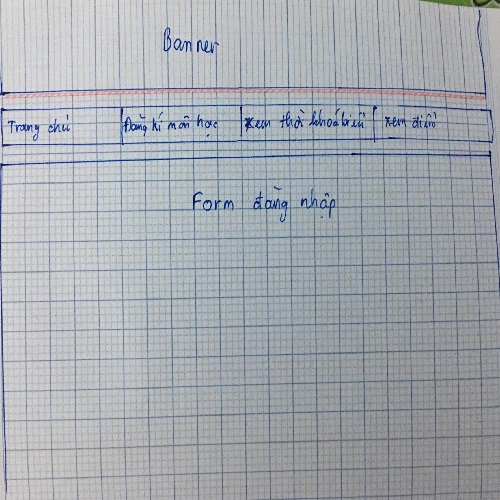 Banner
Trang chủ Đăng kí môn học xem thời khoá biểu xem điểm
Form đăng nhập